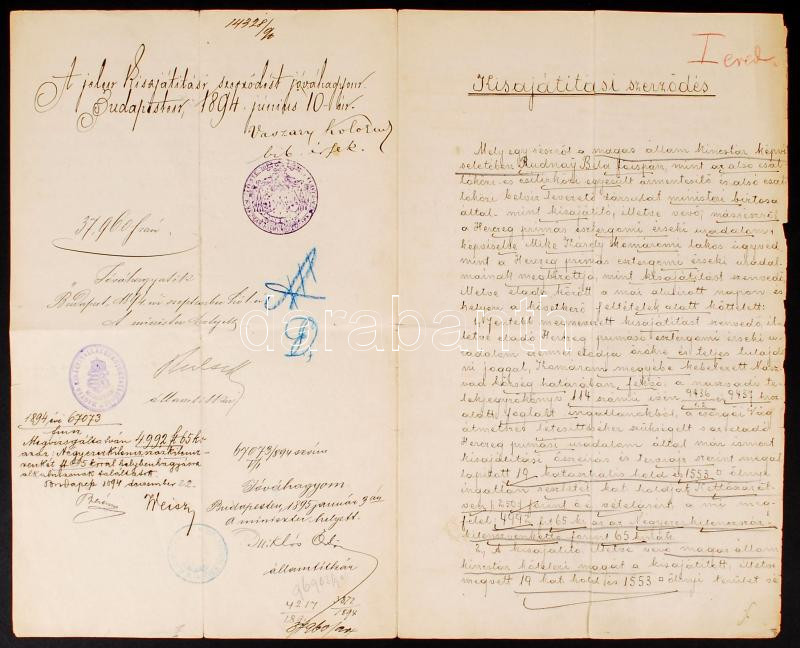 14328/90
A jelen kisajátítási szerződést jóváhagyom.
Budapesten, 1894. junius 10-én.
Vaszary Kolos
37.960 szám
Jóváhagyatik
Budapest, 1894 évi september hó
A minister helyett
államtitkár
1894 évi 67073
szám
Megvizsgáltatván 4992 ft 65 kr
azaz: Négyezerkilenczszázkilencz-
venkét ft 65 krral helybenhagyásra
alkalmasnak találtatott.
Budapest 1894 december 22.
Weisz
67073/894 szám
Jóváhagyom
Budapesten, 1895 január 9 én
A miniszter helyett.
Miklós Ödön
államtitkár
4217
1894
37960
I ered.
Kisajátítási szerződés
Mely egyrészről a magas állam kincstár képvi
seletében Rudnay Béla főispán, mint az alsó csal-
lóközi és csilizközi egyesült ármentesítő és alsó csal-
lóközi belvíz levezető társulat ministeri biztosa
által mint kisajátító, illetve vevő, másrészről
a Herczeg primás esztergomi érseki uradalom,
képviselve Mike Károly komáromi lakos ügyvéd
mint a Herczeg primás esztergomi érseki urada-
mainak megbízottja, mint kisajátítást szenvedő
illetve eladó között a mai alulirott napon és
helyen a következő feltételek alatt köttetett:
1, Fentebb megnevezett kisajátítást szenvedő il-
letve eladó Herczeg primási esztergomi érseki u-
radalom ezennel eladja örökre és teljes tulajdo-
ni joggal, Komárom megyébe kebelezett Nasz-
vad község határában fekvő, a naszvadi te-
lekjegyzőkönyv 114 számú ívén 9436 9437 hrsz
alatt foglalt ingatlanokból, a csergői Vág
átmetszés létesítéséhez szükségelt s az eladó
Herczeg primási uradalom által már ismert
kisajátítási összeírás és térrajz szerint megál-
lapított 19 katastralis hold és 1553 □ ölnyi
ingatlan részletét kat holdját Kettőszázöt-
ven /250/ forint é vételárért a mi meg-
felel: 4992 f 65 kr és az Négyezerkilenczszáz-
kilenczvenkettő forint 65 krnak.
2, A kisajátító illetve vevő magas állam
kincstár kötelezi magát a kisajátított, illetve
megvett 19 kat hold és 1553 □ ölnyi terület vé
darabanth